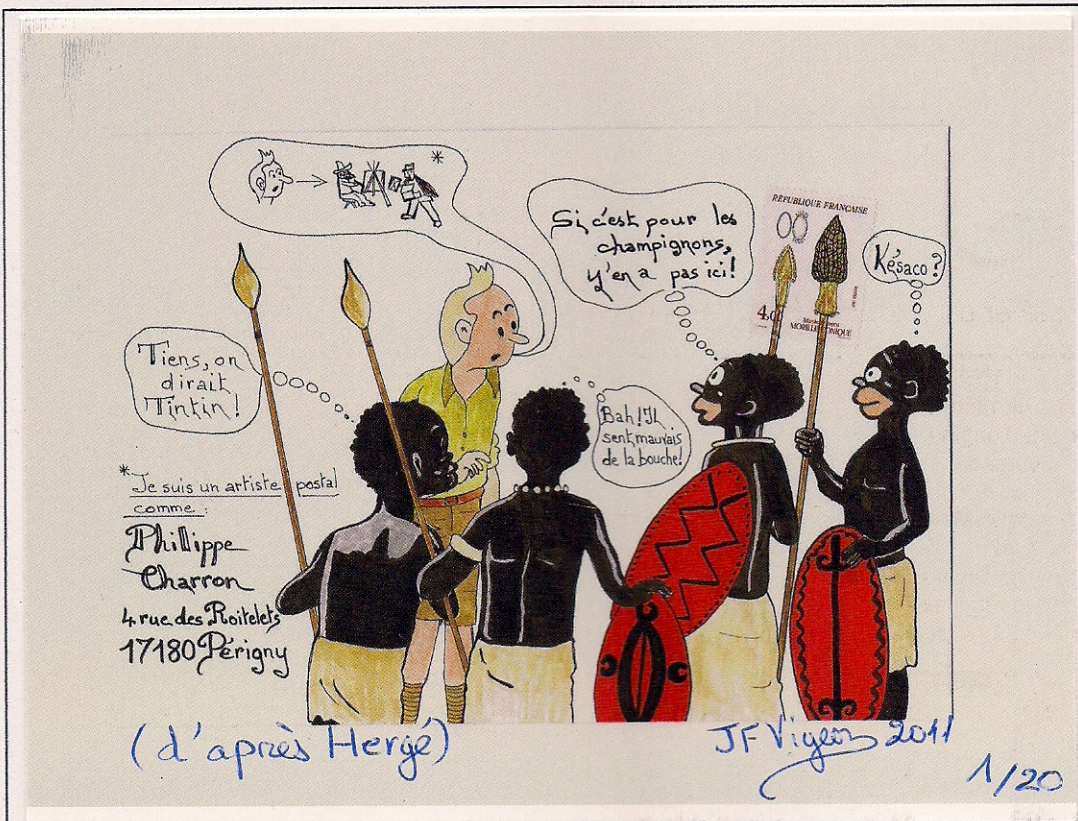 *
Si, c'est pour les
champignons,
y'en a pas ici!
RÉPUBLIQUE FRANÇAISE
4,00
MORILLE CONIQUE
Késaco?
Tiens, on
dirait
Tintin!
Bah! Il
sent mauvais
de la bouche!
*Je suis un artiste postal
comme :
Philippe
Charron
4 rue des Roitelets
17180 Périgny
(d'après Hergé)
JF Vigeon 2011
1/20